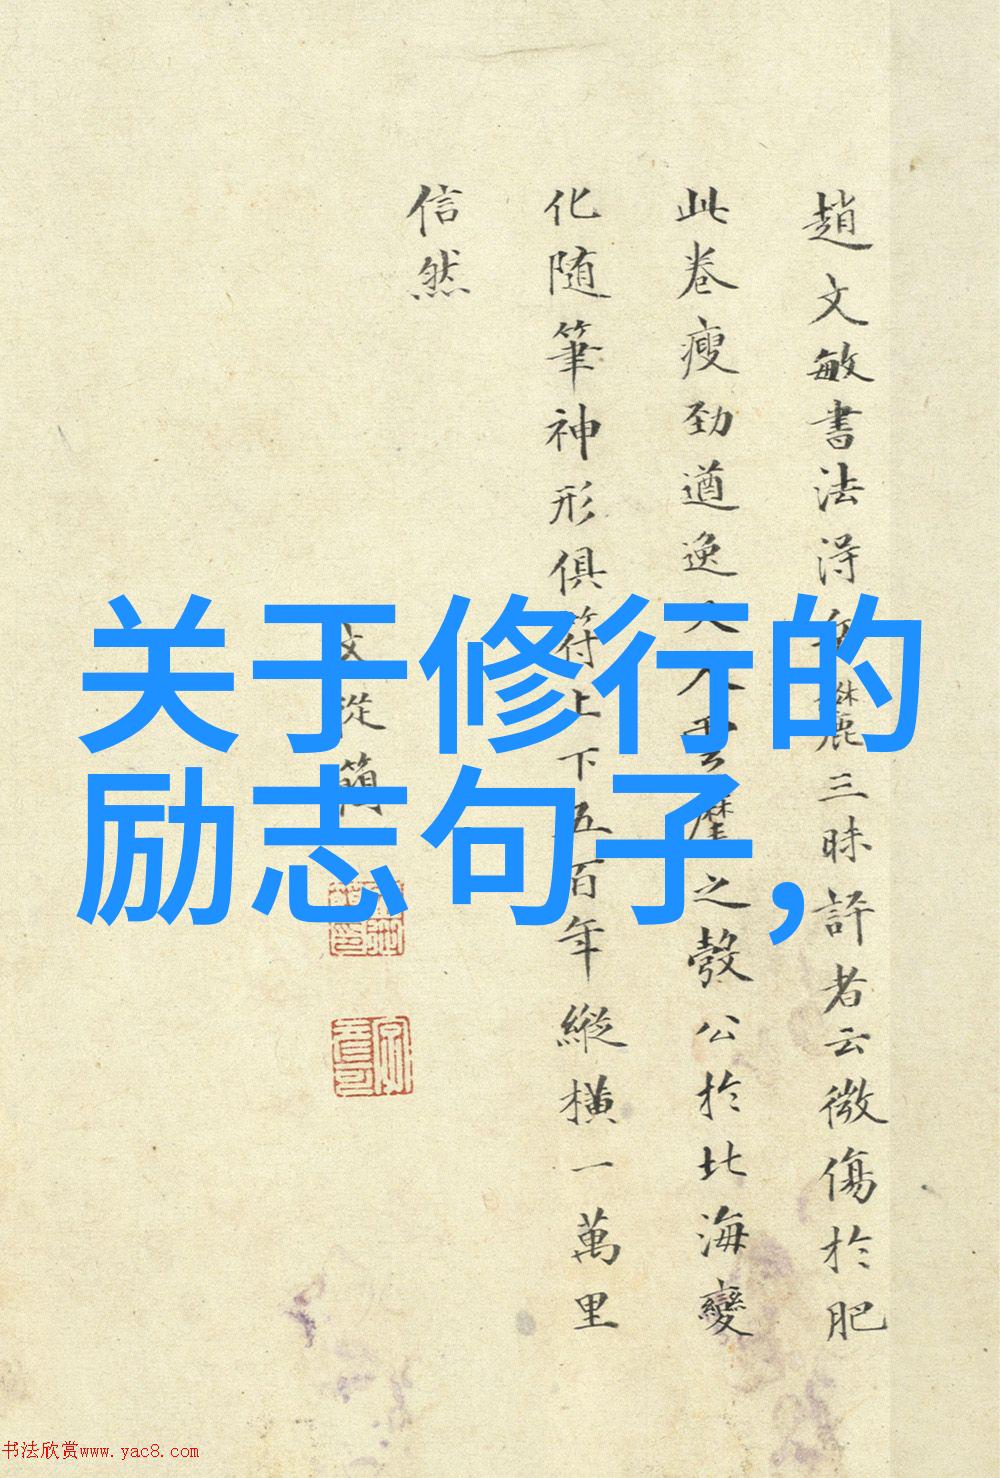 趙文敏書法淂麗三昧評者云微傷於肥
此卷瘦劲遒逸大入雲麾之彀公於北海變
化随筆神形俱符上下五百年縱横一萬里
信然
文從簡
关于修行的
励志句子,
书法欣赏www.yac8.com